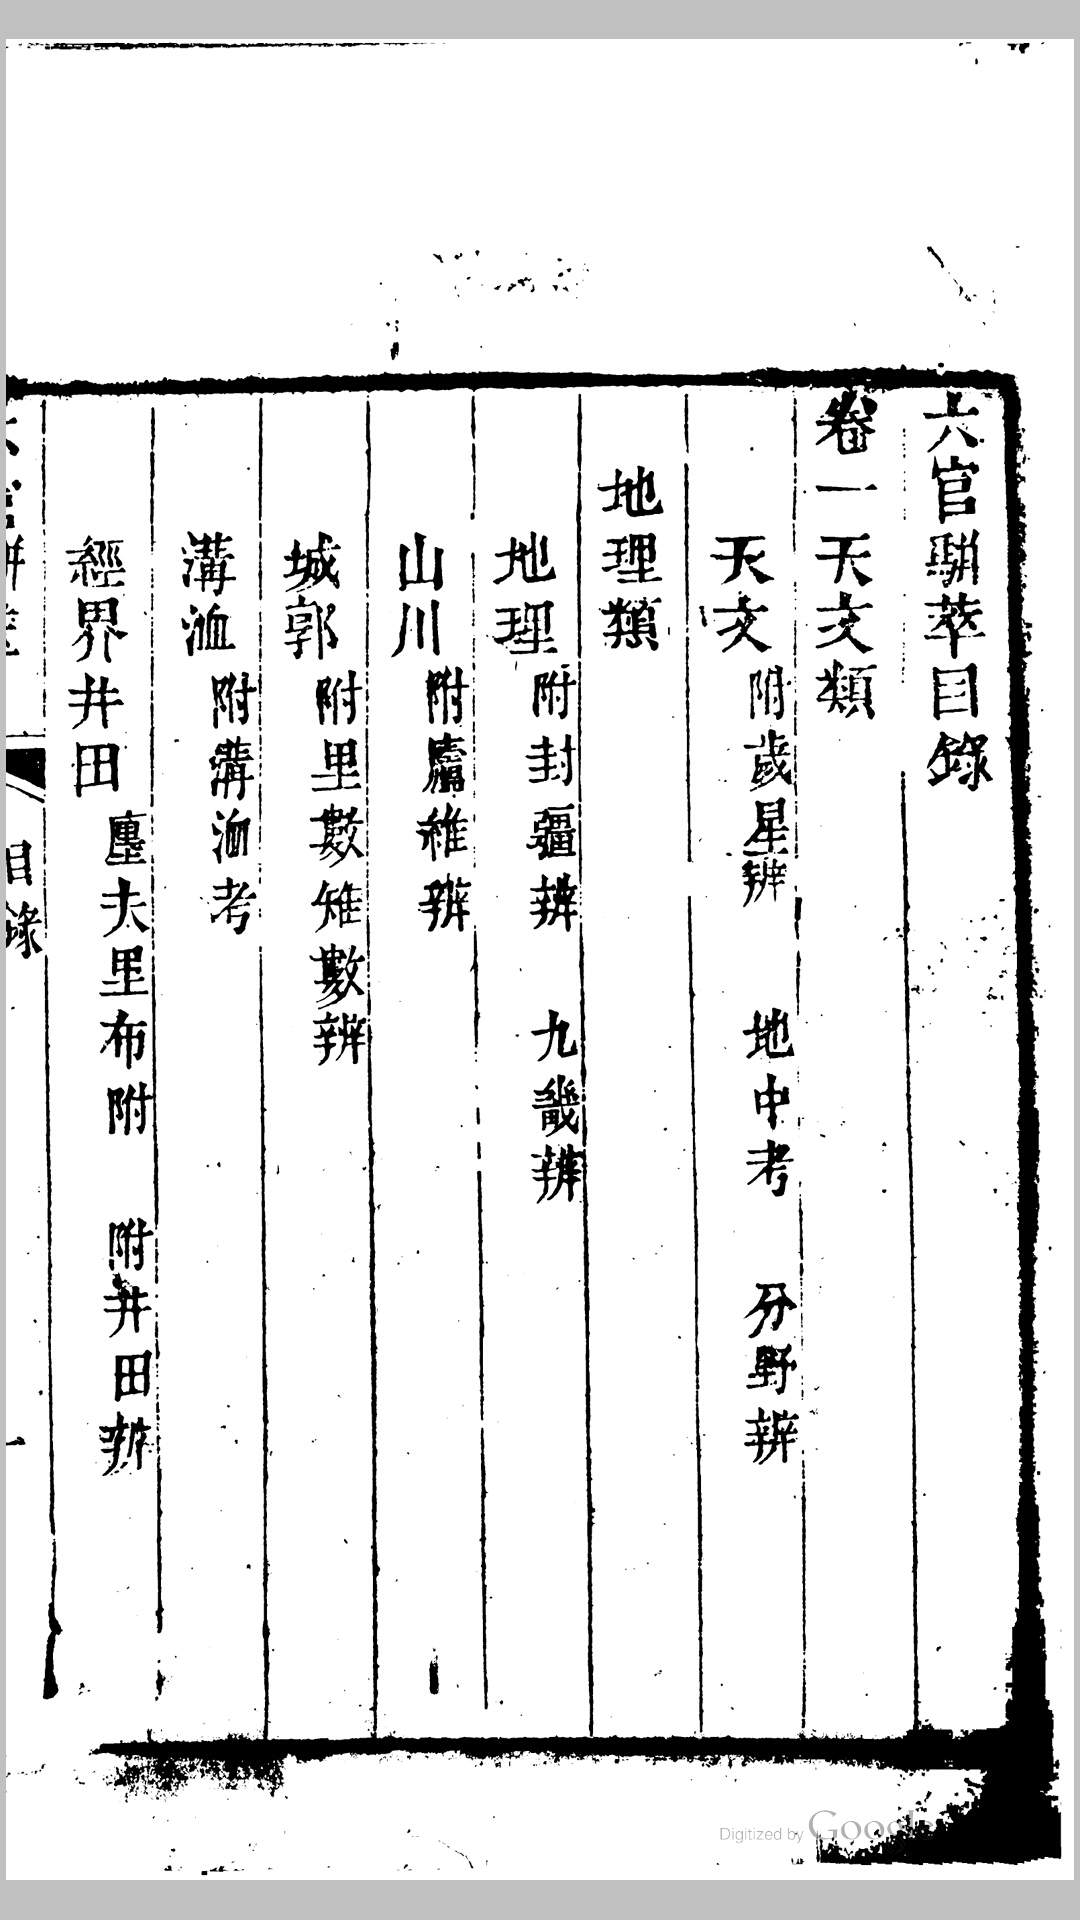 六官駢萃目錄
卷一天文類
天文 附歲星辨 地中考 分野辨
地理類
地理 附封疆辨 九畿辨
山川 附濰辨
城郭 附里數雉數辨
溝洫 附溝洫考
經界井田 廛夫里布附 附井田辨
目錄
一
Digitized by Google